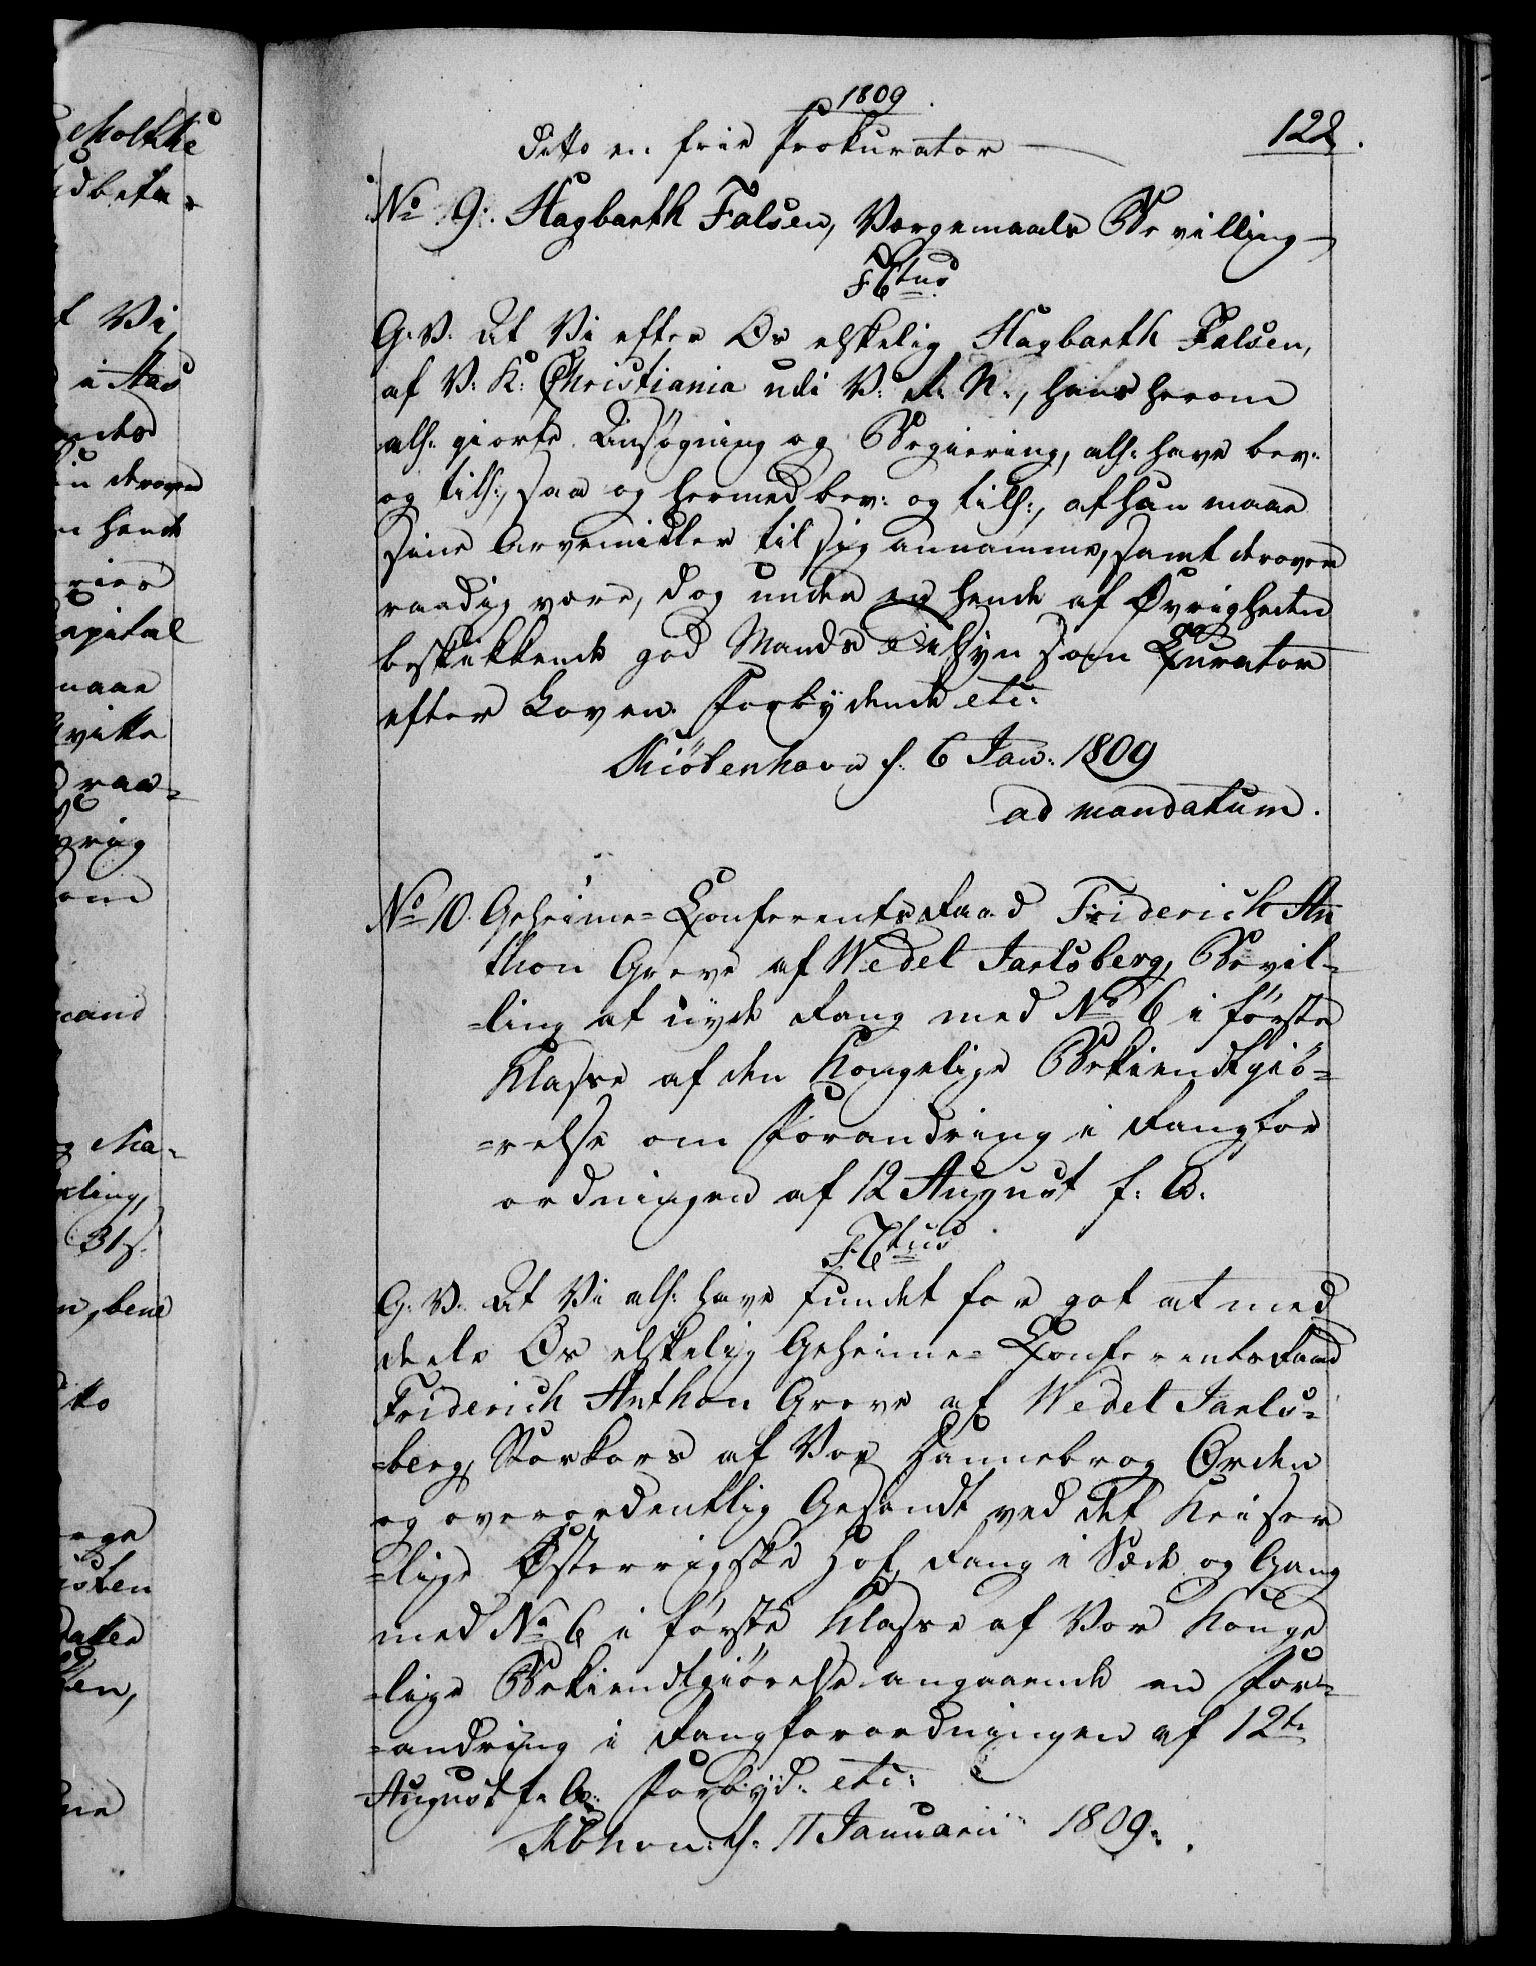 1809
122.
Ditto en frie Prokurator
No 9. Hagbarth Falsen, Værgemaals Bevilling
FCtus
G. V. At Vi efter Os elskelig Hagbarth Falsen,
af V: K: Christiania udi V: R: N:, hans herom
alh: giorte Ansøgning og Begiering, alh: have bev:
og tilh:, saa og hermed bev: og tilh:, at han maae
sine Arvemidler til sig annamme, samt derover
raadig være, dog under en hende af Øvrigheden
beskikkende god Mands Tilsyn som Curator
efter Loven. Forbydende etc:
Kiøbenhavn d. 6 Jan: 1809
ad mandatum.
No 10. Geheime-Conferentsraad Friderich An
thon Greve af Wedel Jarlsberg, Bevil-
=ling at nyde Rang med No 6 i første
Klasse af den Kongelige Bekiendtgiø-
=relse om Forandring i Rangfor
ordningen af 12 August f: A:
FCtus
G. V. At Vi alh: have fundet for got at med
deele Os elskelig Geheime-Conferentsraad
Friderich Anthon Greve af Wedel Jarls-
=berg, Storkors af Vor Dannebrog Orden
og overordentlig Gesandt ved det Keiser
=lige Østerrigske Hof, Rang i Sæde og Gang
med No 6 i første Klasse af Vor Konge
=lige Bekiendtgiørelse angaaende en For-
=andring i Rangforordningen af 12te
August f. A: Forbyd: etc:
Kbhvn: d: 11 Januarii 1809.